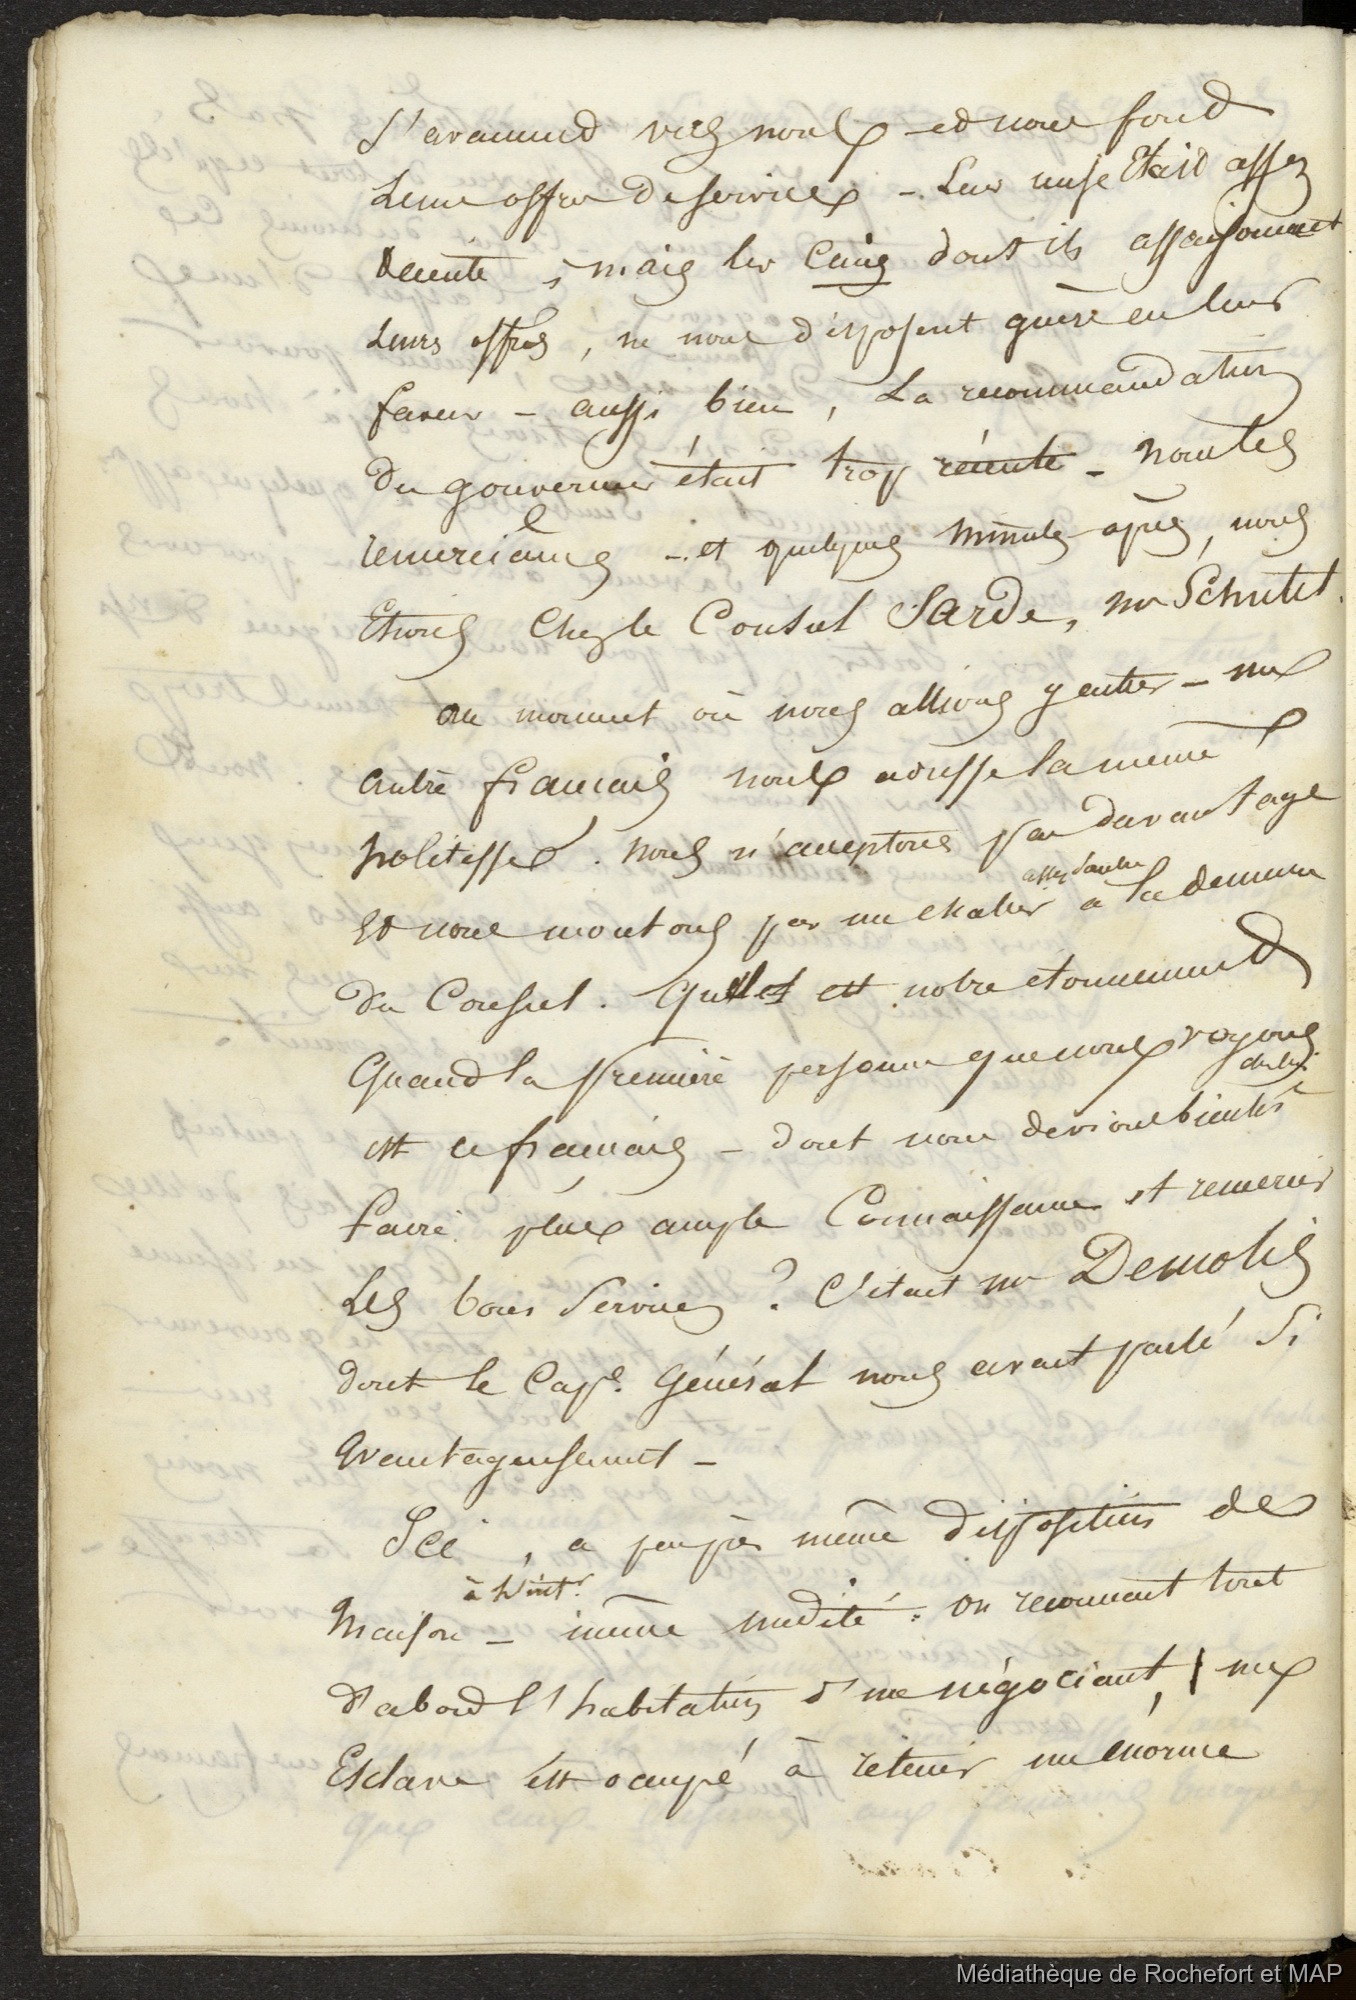 s'avancent vers nous et nous font
Leurs offres de services – Leur mise Etait assez
decente ; mais les Cuirs dont ils assaisonnent
Leurs offres, ne nous disposent guère en leur
faveur – aussi bien, La recommandation
du gouverneur était trop récente – nous les
remercions – et quelques minutes après, nous
Etions Chez le Consul Sarde, mr Schutet.
au moment où nous allions y entrer – un
autre français nous adresse la même
politesse. nous n'acceptons pas davantage
assez sombre
Et nous montons par un escalier à la demeure
du Consul. Quel est notre etonnement
Quand la première personne que nous voyons
chez lui
est ce français – dont nous devions bientôt
faire plus ample Connaissance et remercier
Les bons Services ? C'était mr Demolis
dont le Cape. Général nous avait parlé Si
avantageusement –
Ici, a peu près même disposition de
à l'intr.
Maison – même nudité. on reconnait tout
d'abord l'habitation d'un négociant, un
Esclave est occupé à retenir un énorme
Médiathèque de Rochefort et MAP